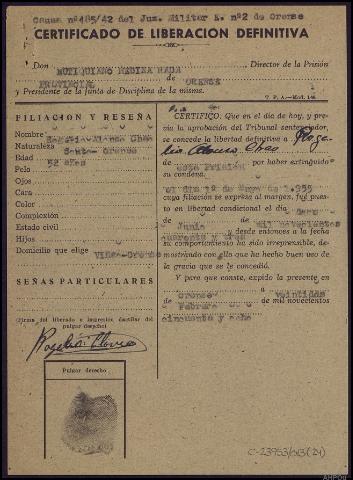 Causa nº485/42 del Juz. Militar E. nº2 de Orense
CERTIFICADO DE LIBERACION DEFINITIVA
Don MUNIQUIANO MEDINA Director de la Prisión
PROVINCIAL de ORENSE
y Presidente de la Junta de Disciplina de la misma.
T. P. A.—Mod.
FILIACION Y RESEÑA
Nombre Alonso
Naturaleza Orense
Edad 52 años
Pelo
Ojos
Cara
Color
Complexión
Estado civil
Hijos
Domicilio que elige Orense
SEÑAS PARTICULARES
(Firma del liberado e impresión dactilar del pulgar derecho)
Rogelio Alonso
Pulgar derecho
CERTIFICO: Que en el día de hoy, y previa aprobación del Tribunal sentenciador,
se concede la libertad definitiva a Rogelio Alonso
de esta Prisión por haber extinguido
su condena.
el día 1º de Mayo de 1.955
cuya filiación se expresa al margen, fué puesto
en libertad condicional el día
de Junio de mil novecientos
cuarenta y tres y desde entonces a la fecha
su comportamiento ha sido irreprensible, demostrando
con ello que ha hecho buen uso de
la gracia que se le concedió.
Y para que conste, expido la presente en
Orense a veintidos
de Febrero de mil novecientos
cincuenta y ocho
C-23953/013(24)
AHPOU